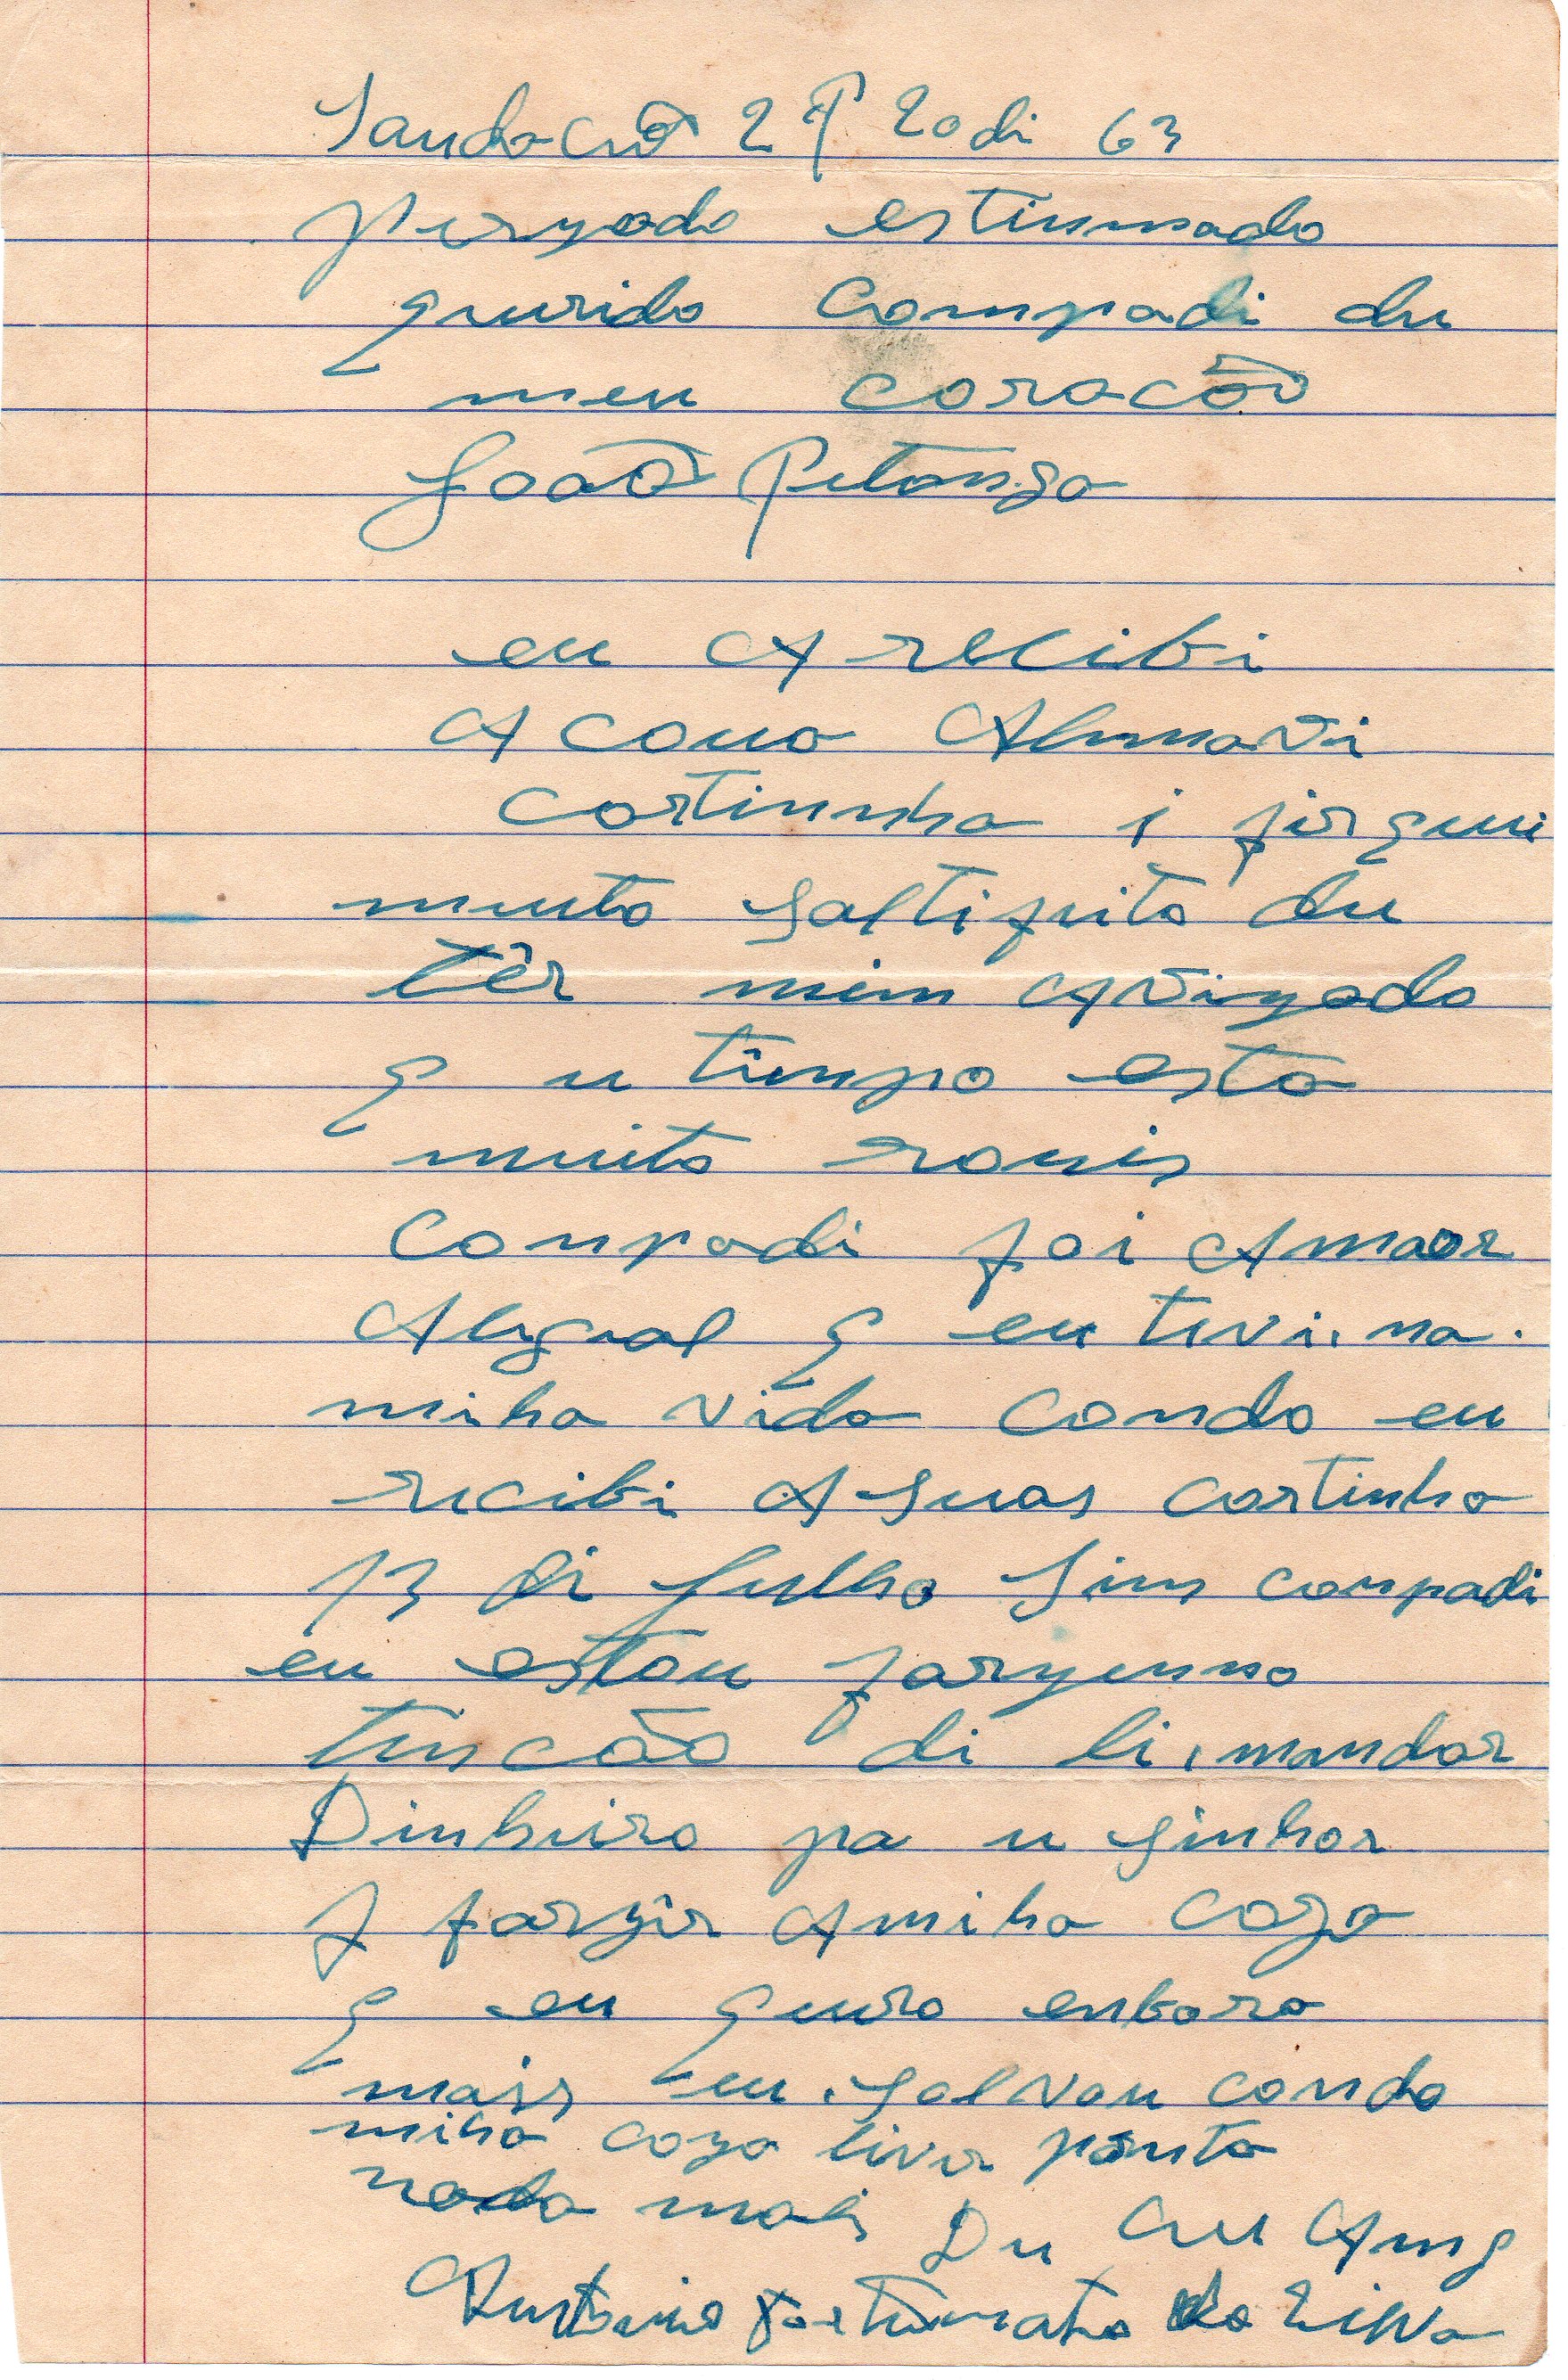 Saudacão 27 20 di 63
perzado estimmado
qurido Compadi du
meu coracão
João Petanga
eu A recibi
A coua Almavi
cartinnha i firqui
muuto saltifuito du
têr mim Avizado
q u tempo esta
muito rouis
Conpadi foi Amaor
Alegral q eu tevi. na.
miha vida condo eu
recibi A suas cartinha
13 di Julho Sim conpadi
eu estou farzenno
tencão di li, mandar
Dinheiro pa u Sinhor
f farzir Amiha caza
q eu quero enbora
mais eu só vou condo
miha caza tiver pronta
nada mais Du Ceu Amg
fortunato da Silva